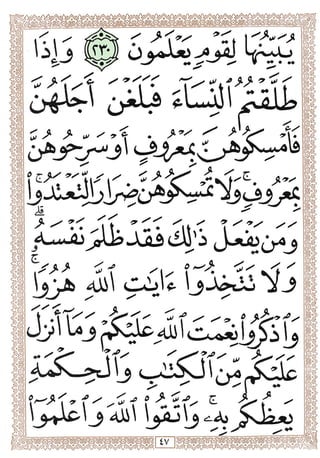 يُبَيِّنُهَا لِقَوْمٍ يَعْلَمُونَ ٢٣٠ وَإِذَا
طَلَّقْتُمُ ٱلنِّسَآءَ فَبَلَغْنَ أَجَلَهُنَّ
فَأَمْسِكُوهُنَّ بِمَعْرُوفٍ أَوْ سَرِّحُوهُنَّ
بِمَعْرُوفٍ ۚ وَلَا تُمْسِكُوهُنَّ ضِرَارًا لِّتَعْتَدُوا۟ ۚ
وَمَن يَفْعَلْ ذَٰلِكَ فَقَدْ ظَلَمَ نَفْسَهُۥ ۚ
وَلَا تَتَّخِذُوٓا۟ ءَايَٰتِ ٱللَّهِ هُزُوًا ۚ
وَٱذْكُرُوا۟ نِعْمَتَ ٱللَّهِ عَلَيْكُمْ وَمَآ أَنزَلَ
عَلَيْكُم مِّنَ ٱلْكِتَٰبِ وَٱلْحِكْمَةِ
يَعِظُكُم بِهِۦ ۚ وَٱتَّقُوا۟ ٱللَّهَ وَٱعْلَمُوٓا۟
٤٧